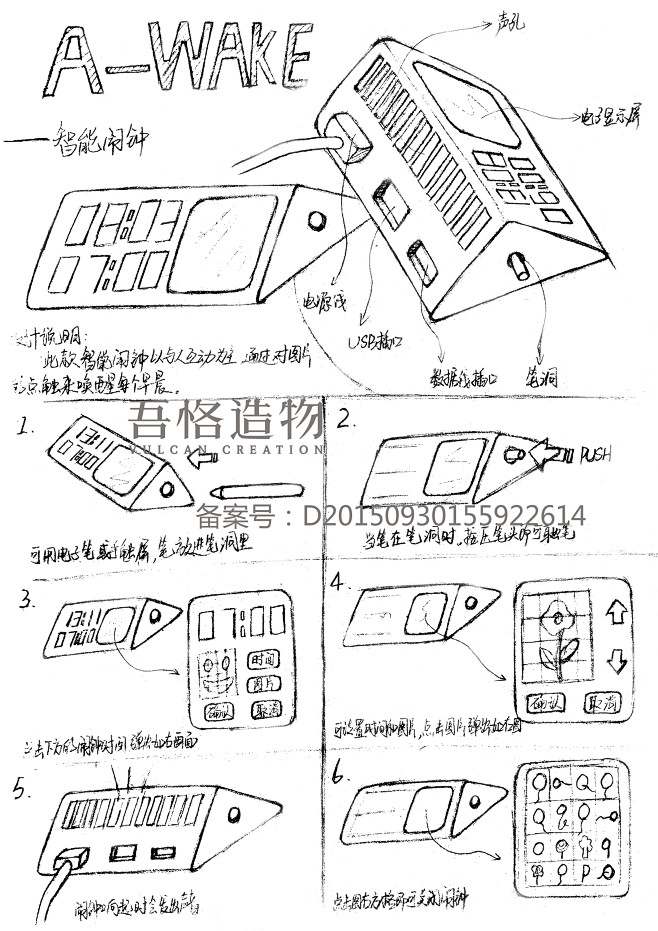 A-WAKE
声孔
电子显示屏
——智能闹钟
08:03
07:00
电源线
USB插口
数据线插口
笔洞
设计说明:
此款智能闹钟以与人互动为主,通过对图片
的点触来唤醒每个早晨。
吾格造物
VULCAN CREATION
备案号:D20150930155922614
1.
13:11
07:00
可用电子笔或手触屏,笔放进笔洞里
2.
PUSH
当笔在笔洞时,按压笔头即可取笔
3.
13:11
07:00
07:00
时间
图片
确认
取消
点击下方的闹钟时间弹出如右画面
4.
确认
取消
可设置时间和图片,点击图片弹出如右图
5.
闹钟响起时会发出声音
6.
点击图右方格即可关闭闹钟